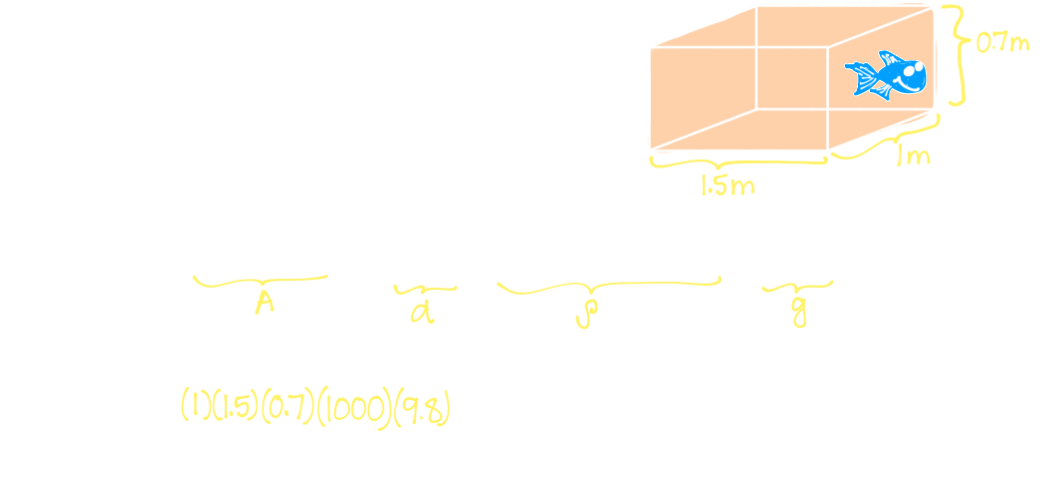 0.7m
1m
1.5m
A d ρ g
(1)(1.5)(0.7)(1000)(9.8)